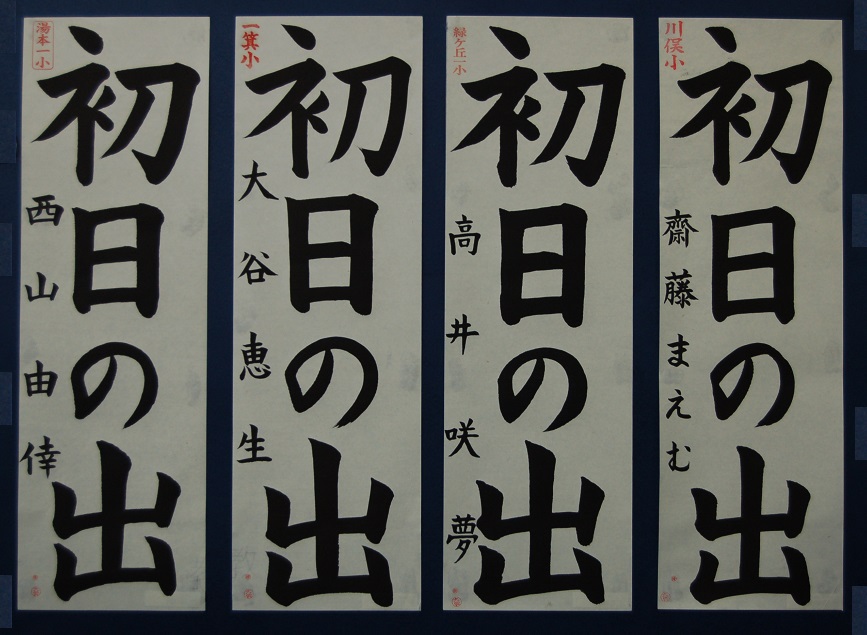 川俣小
初日の出
齋藤まえむ
緑ケ丘一小
初日の出
高井咲夢
一箕小
初日の出
大谷恵生
湯本一小
初日の出
西山由倖